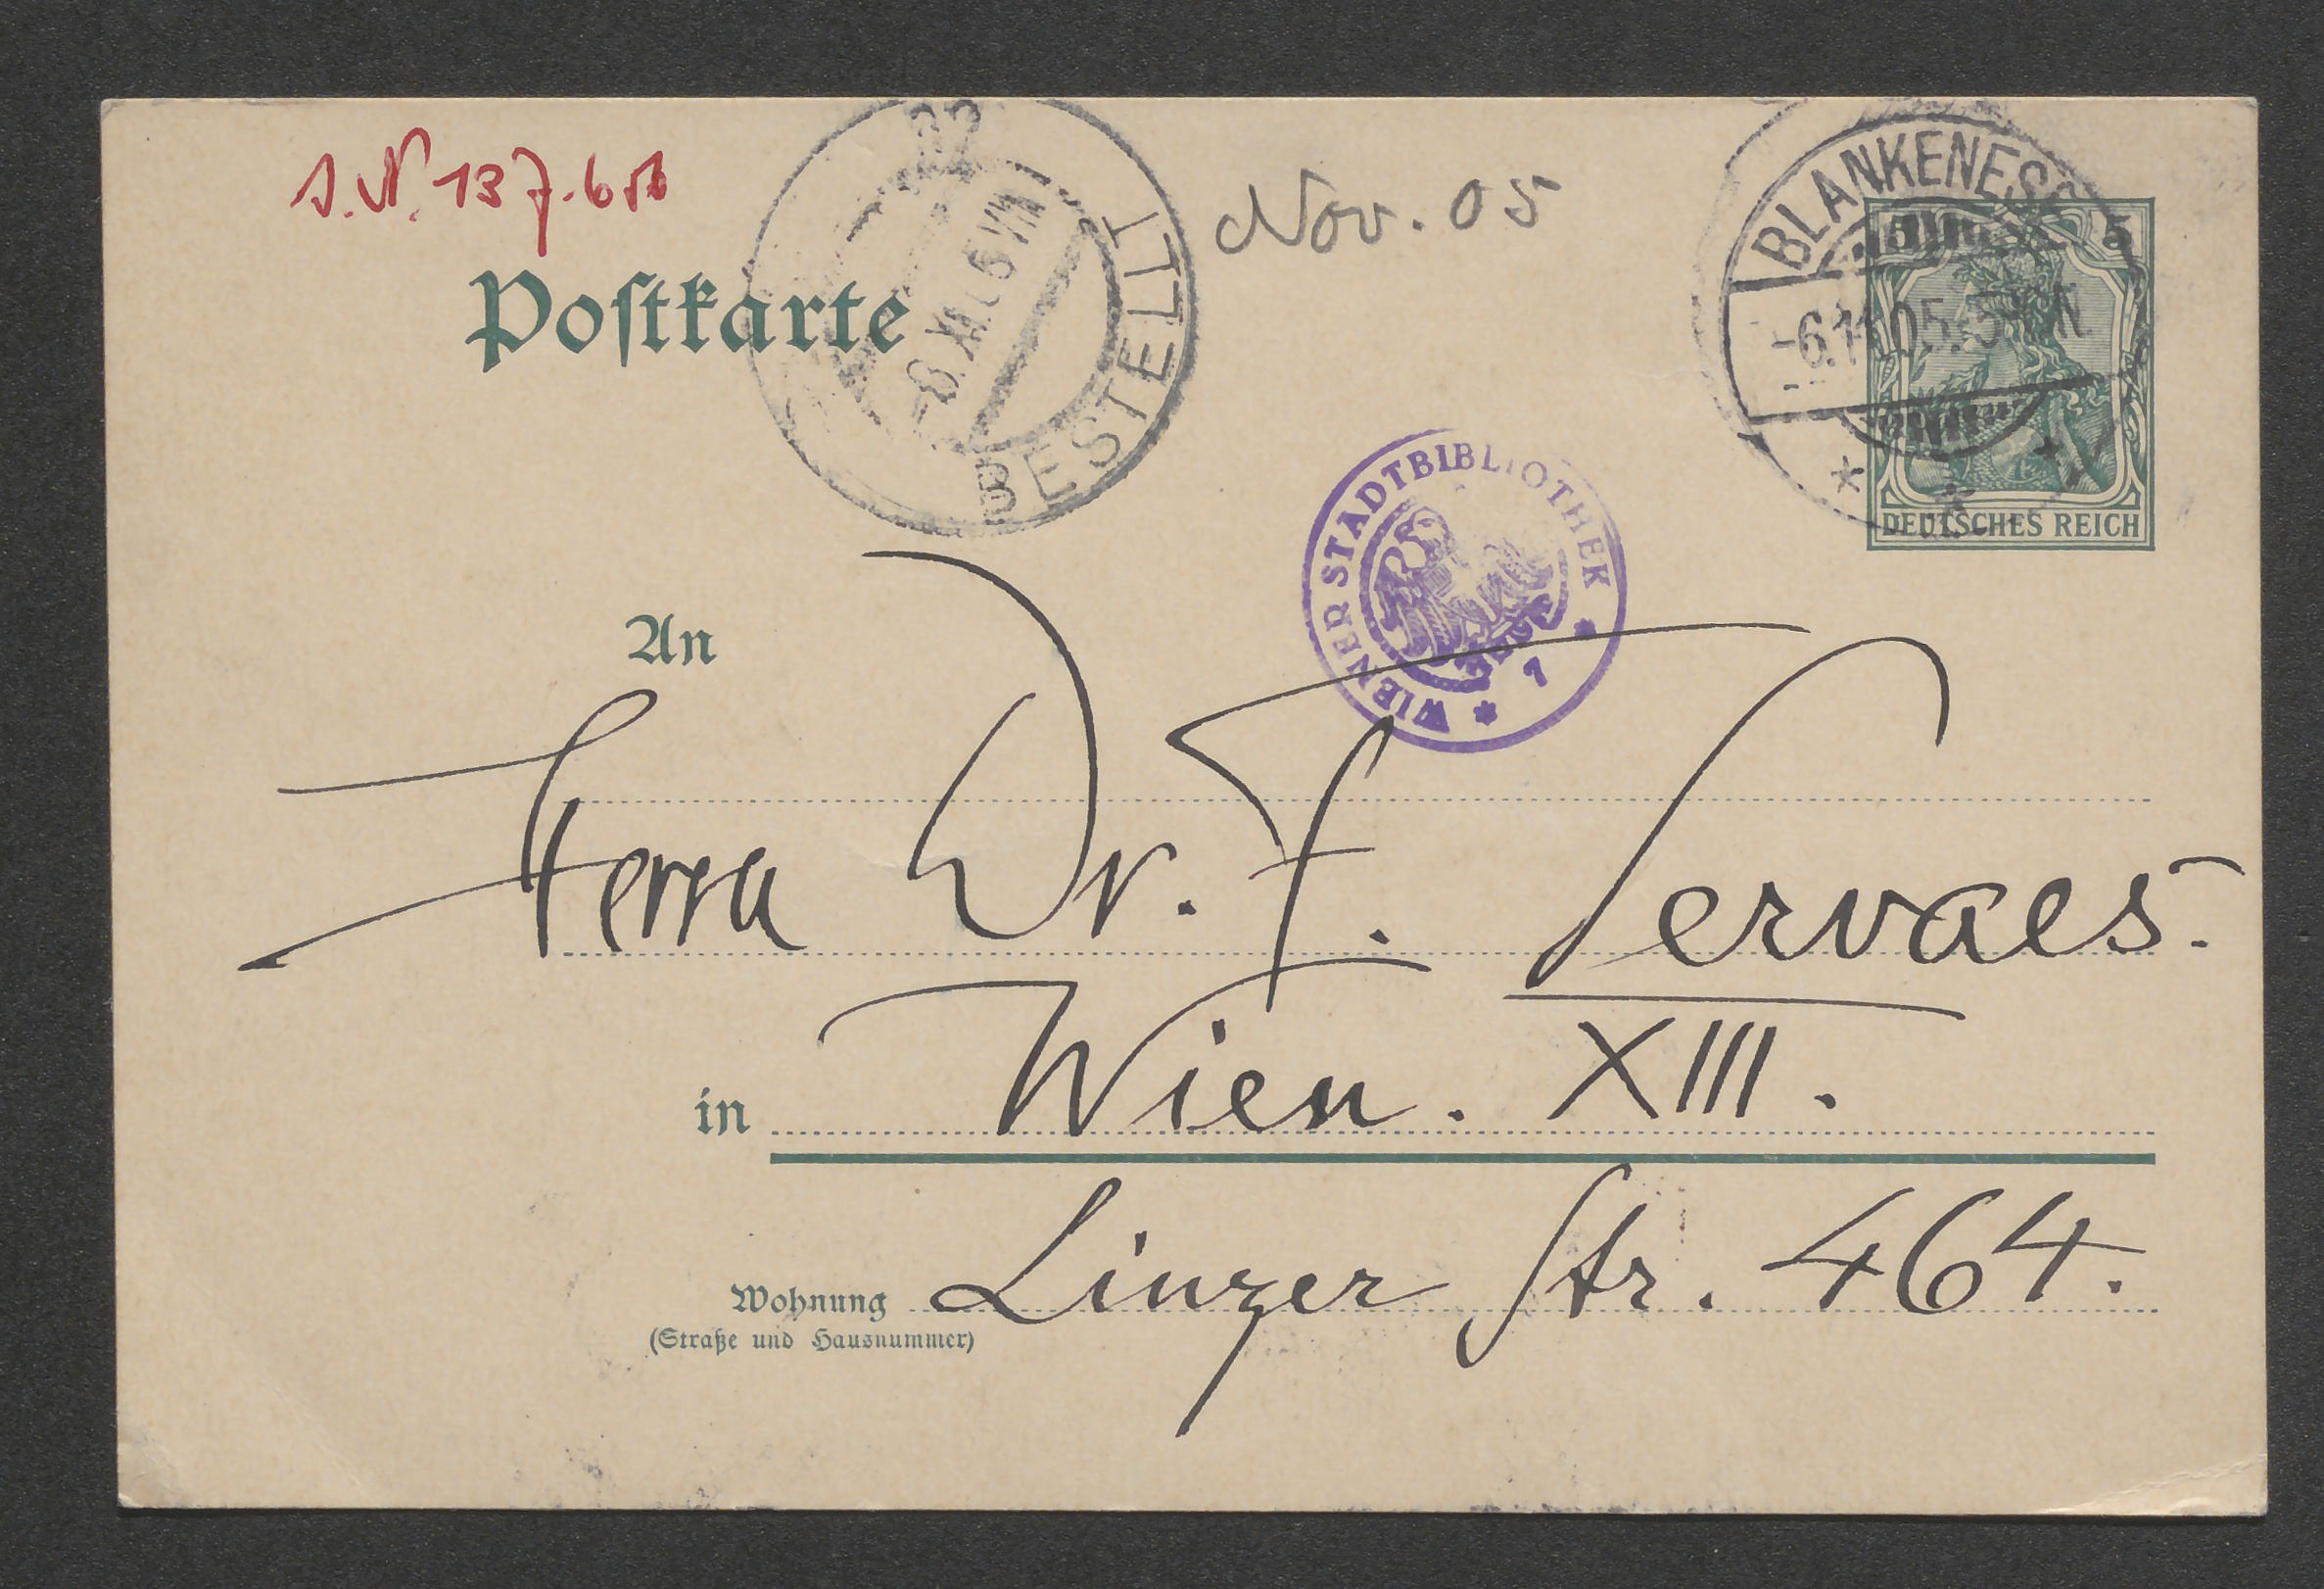 I.N. 137.6
Nov. 05
BLANKENESE
-6.11.05. 5-6N.
5 5
DEUTSCHES REICH
BESTELLT
Postkarte
WIENER STADTBIBLIOTHEK * 1 *
An
Herrn Dr. F. Servaes.
in Wien. XIII.
Wohnung Linzer Str. 464.
(Straße und Hausnummer)